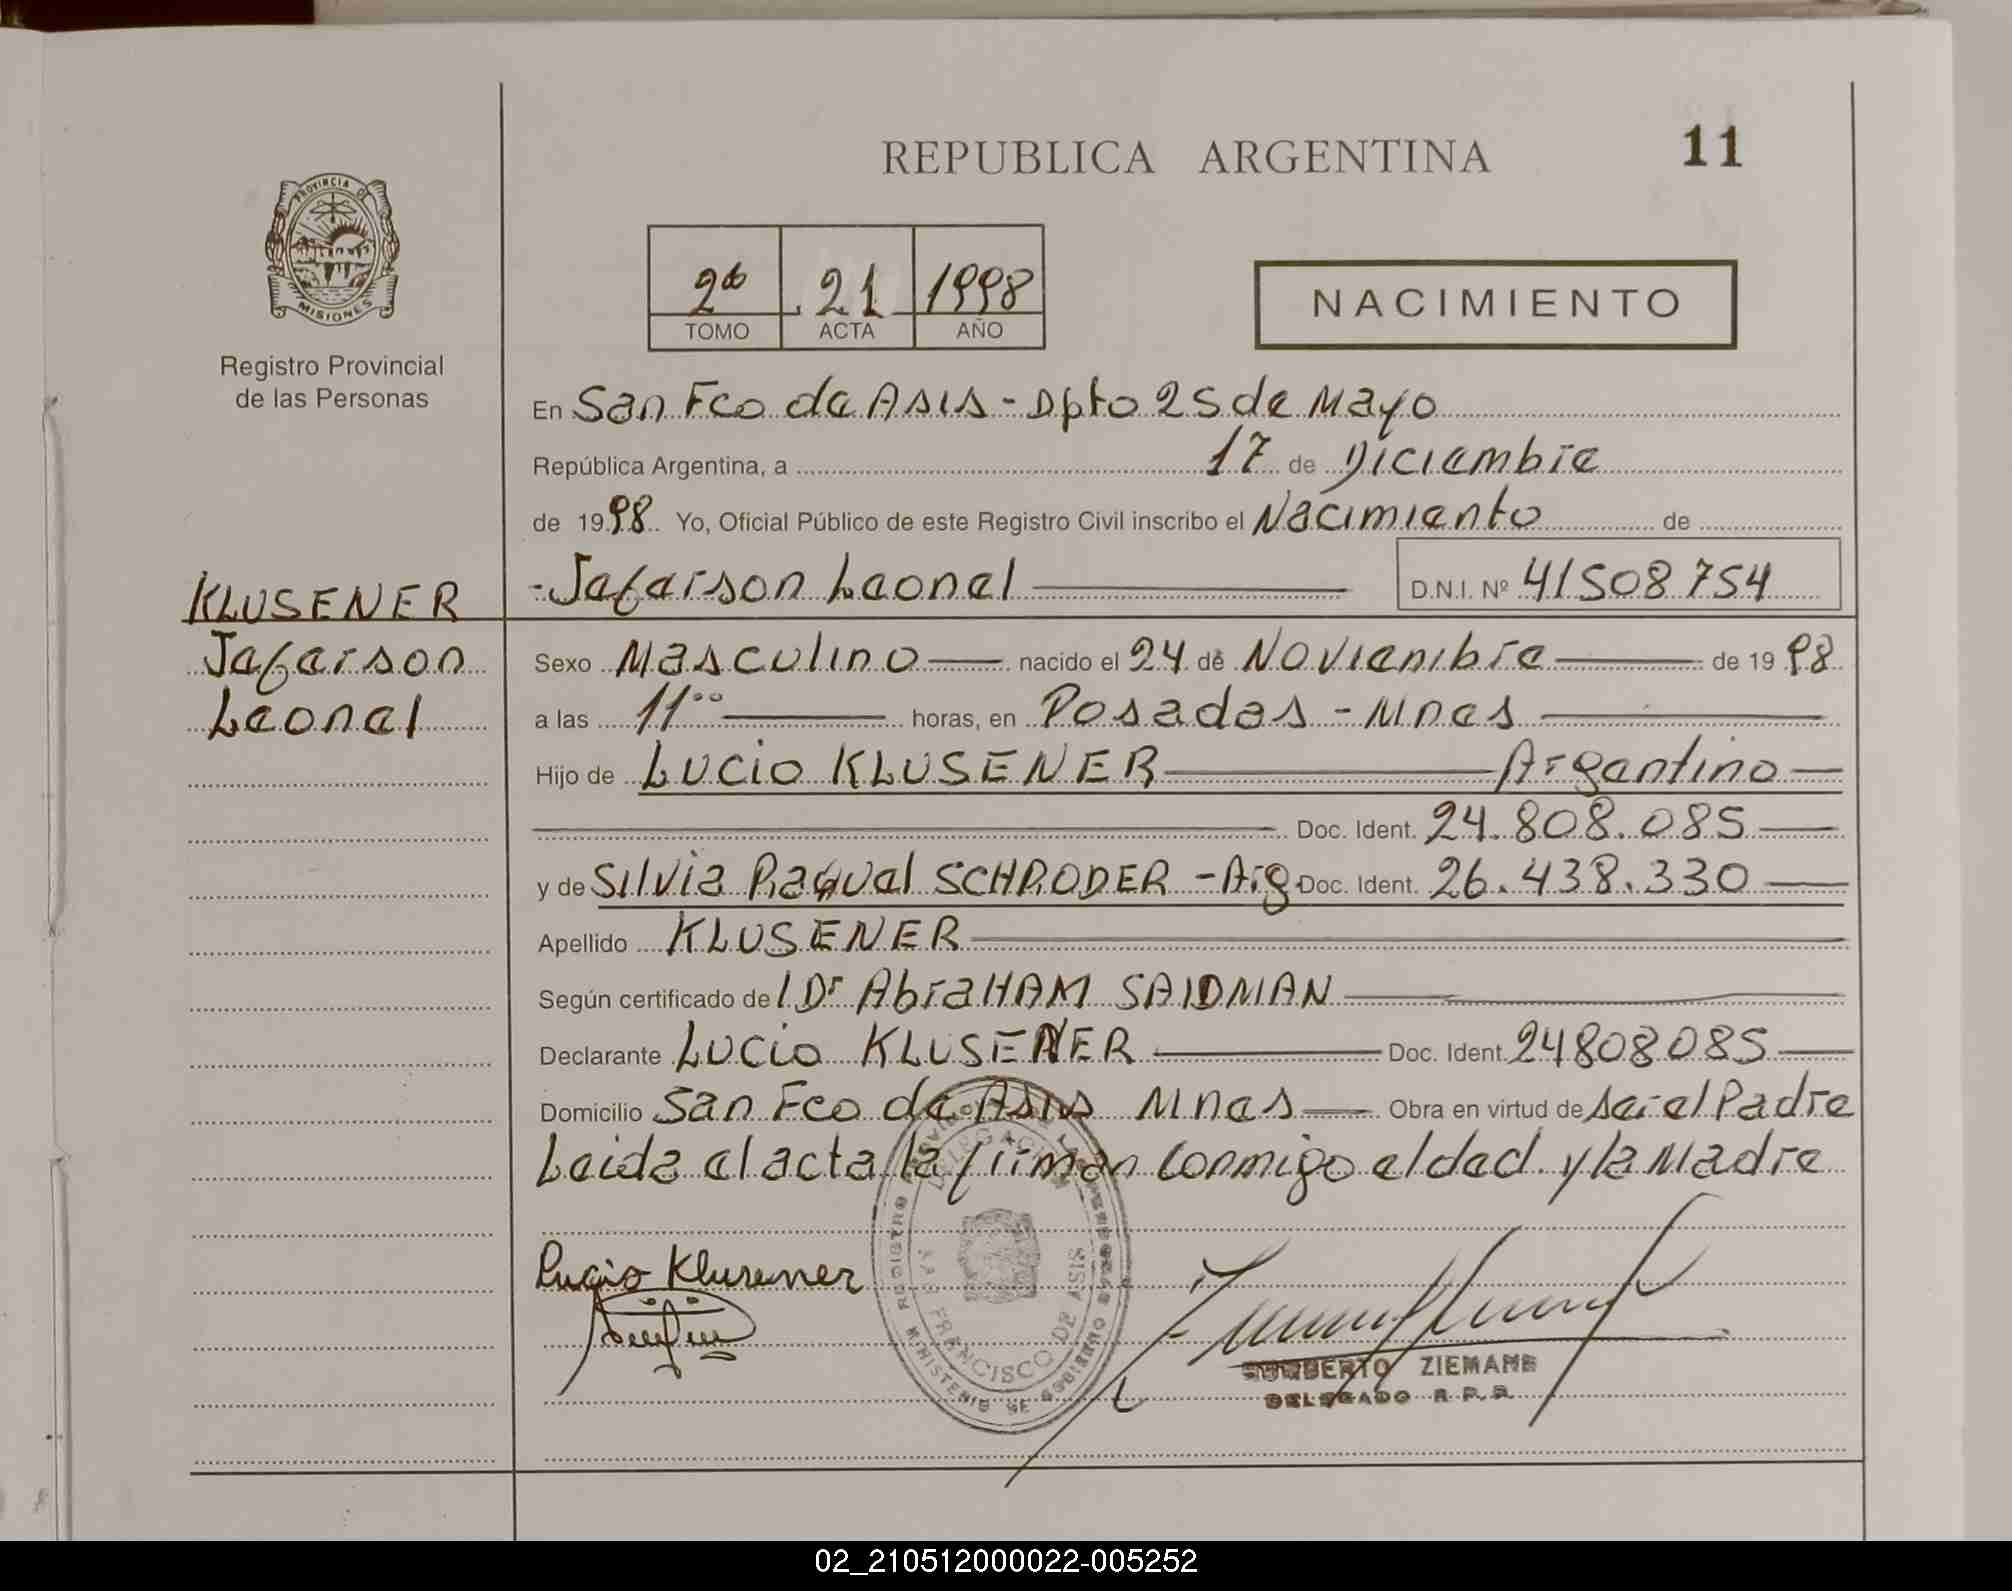 REPUBLICA ARGENTINA
11
PROVINCIA DE
MISIONES
Registro Provincial
de las Personas
2do 21 1998
TOMO ACTA AÑO
NACIMIENTO
En San Fco de Asis - Dpto 25 de Mayo
República Argentina, a 17 de Diciembre
de 1998 Yo, Oficial Público de este Registro Civil inscribo el Nacimiento de
- Jeferson Leonel D.N.I. Nº 41508754
KLUSENER
Jeferson
Leonel
Sexo Masculino nacido el 24 de Noviembre de 1998
a las 11°° horas, en Posadas - Mnes
Hijo de Lucio KLUSENER Argentino
Doc. Ident. 24.808.085
y de Silvia Raquel SCHRODER - Arg Doc. Ident. 26.438.330
Apellido KLUSENER
Según certificado del Dr AbraHAM SAIDMAN
Declarante Lucio KLUSENER Doc. Ident. 24808085
Domicilio San Fco de Asis Mnes Obra en virtud de ser el Padre
Leida el acta la firman conmigo el dcd. y la Madre
Lucio Klusener
SAN FRANCISCO DE ASIS
NORBERTO ZIEMANN
DELEGADO R.P.P.
02_210512000022-005252